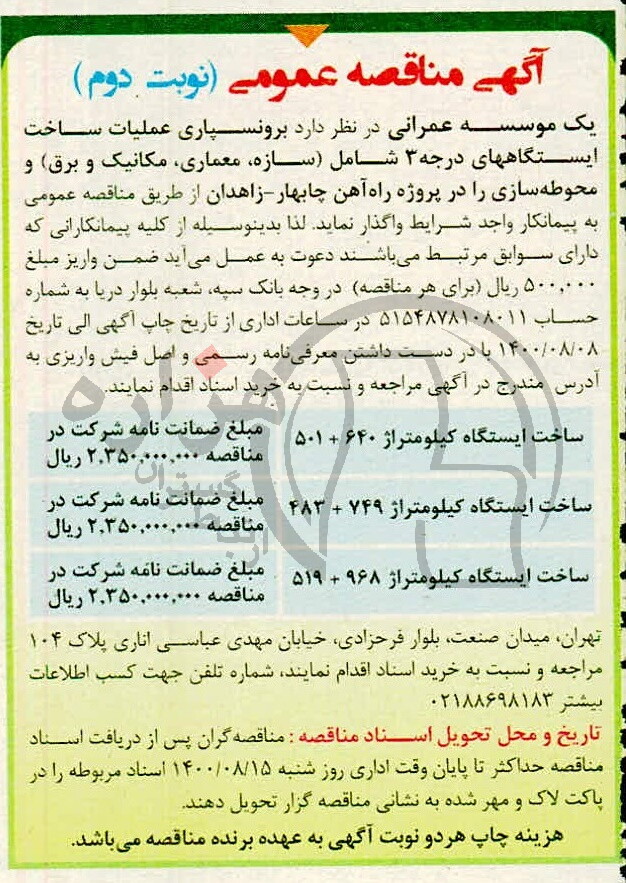 آگهی مناقصه عمومی (نوبت دوم)
یک موسسه عمرانی در نظر دارد برونسپاری عملیات ساخت
ایستگاههای درجه۳ شامل (سازه، معماری، مکانیک و برق) و
محوطه‌سازی را در پروژه راه‌آهن چابهار-زاهدان از طریق مناقصه عمومی
به پیمانکار واجد شرایط واگذار نماید. لذا بدینوسیله از کلیه پیمانکارانی که
دارای سوابق مرتبط می‌باشند دعوت به عمل می‌آید ضمن واریز مبلغ
۵۰۰,۰۰۰ ریال (برای هر مناقصه) در وجه بانک سپه، شعبه بلوار دریا به شماره
حساب ۵۱۵۴۸۷۸۱۰۸۰۱۱ در ساعات اداری از تاریخ چاپ آگهی الی تاریخ
۱۴۰۰/۰۸/۰۸ با در دست داشتن معرفی‌نامه رسمی و اصل فیش واریزی به
آدرس مندرج در آگهی مراجعه و نسبت به خرید اسناد اقدام نمایند.
ساخت ایستگاه کیلومتراژ ۶۴۰ + ۵۰۱
مبلغ ضمانت نامه شرکت در
مناقصه ۲,۳۵۰,۰۰۰,۰۰۰ ریال
ساخت ایستگاه کیلومتراژ ۷۴۹ + ۴۸۳
مبلغ ضمانت نامه شرکت در
مناقصه ۲,۳۵۰,۰۰۰,۰۰۰ ریال
ساخت ایستگاه کیلومتراژ ۹۶۸ + ۵۱۹
مبلغ ضمانت نامه شرکت در
مناقصه ۲,۳۵۰,۰۰۰,۰۰۰ ریال
تهران، میدان صنعت، بلوار فرحزادی، خیابان مهدی عباسی اناری پلاک ۱۰۴
مراجعه و نسبت به خرید اسناد اقدام نمایند، شماره تلفن جهت کسب اطلاعات
بیشتر ۰۲۱۸۸۶۹۸۱۸۳
تاریخ و محل تحویل اسناد مناقصه: مناقصه‌گران پس از دریافت اسناد
مناقصه حداکثر تا پایان وقت اداری روز شنبه ۱۴۰۰/۰۸/۱۵ اسناد مربوطه را در
پاکت لاک و مهر شده به نشانی مناقصه گزار تحویل دهند.
هزینه چاپ هر دو نوبت آگهی به عهده برنده مناقصه می‌باشد.
هزاره